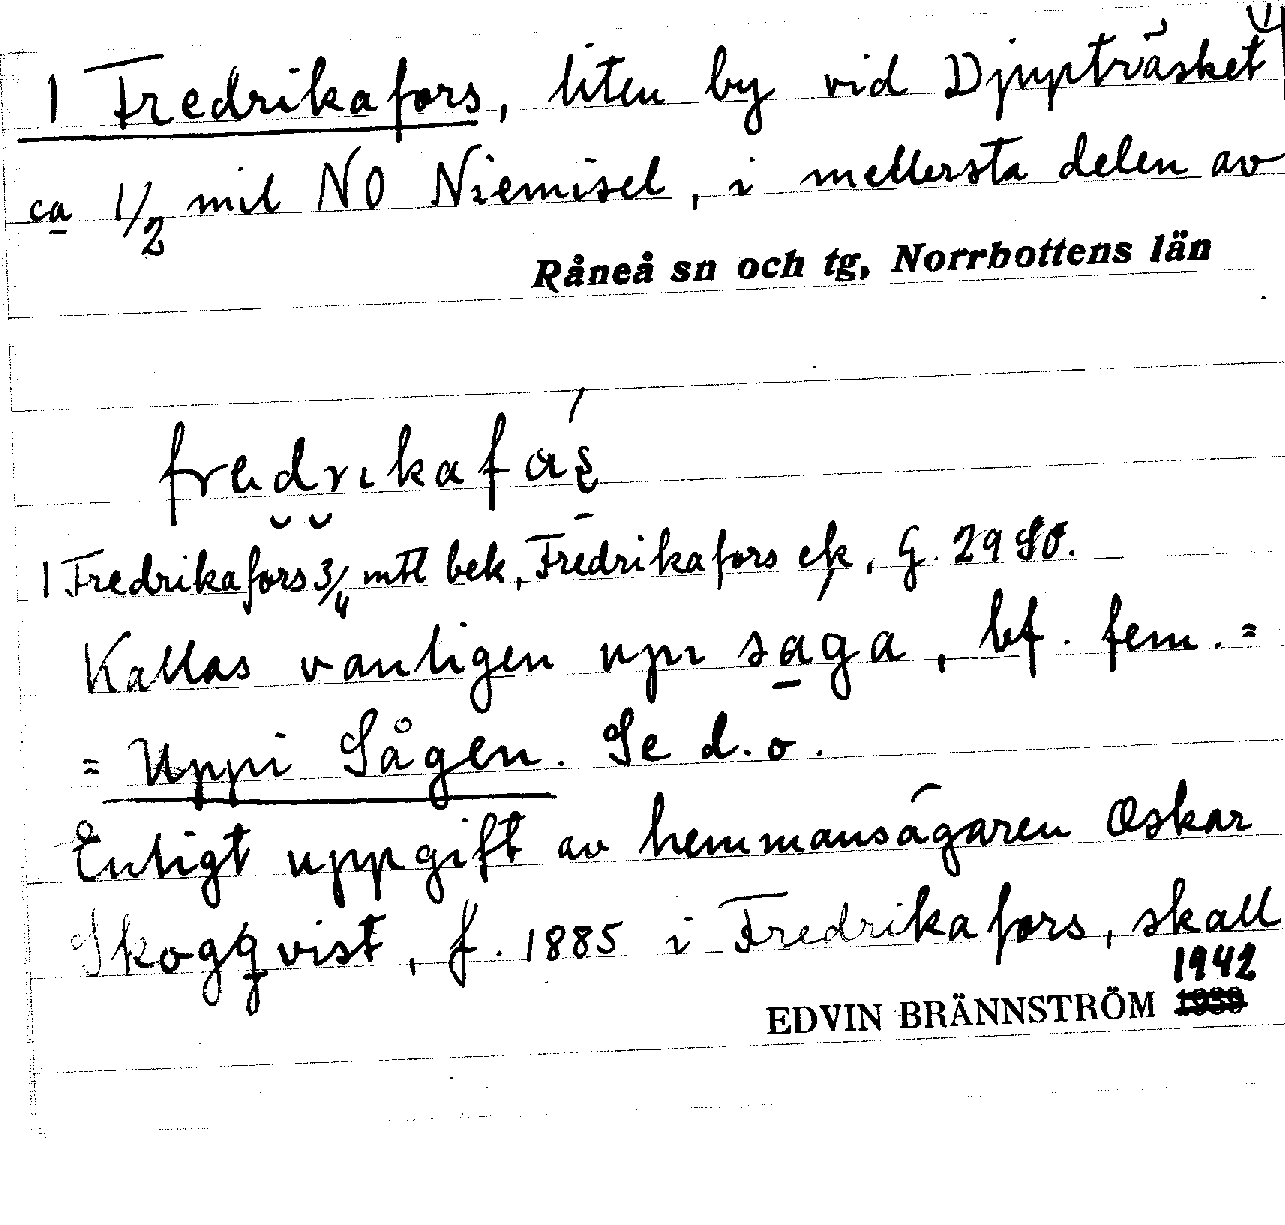 1 Fredrikafors, liten by vid Djupträsket
ca 1/2 mil NO Niemisel, i mellersta delen av
Råneå sn och tg, Norrbottens län
1 Fredrikafors 3/4 mtl bek, Fredrikafors ek, G. 29 SO.
Kallas vanligen upi såga, bf. fem. =
= Uppi Sågen. Se d.o.
Enligt uppgift av hemmansägaren Oskar
Skogqvist, f. 1885 i Fredrikafors, skall
1942
EDVIN BRÄNNSTRÖM 1939